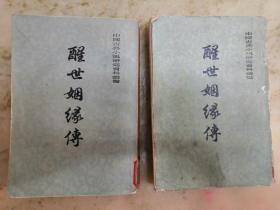 中國古典小說研究資料叢書
醒世姻緣傳
中國古典小說研究資料叢書
醒世姻緣傳